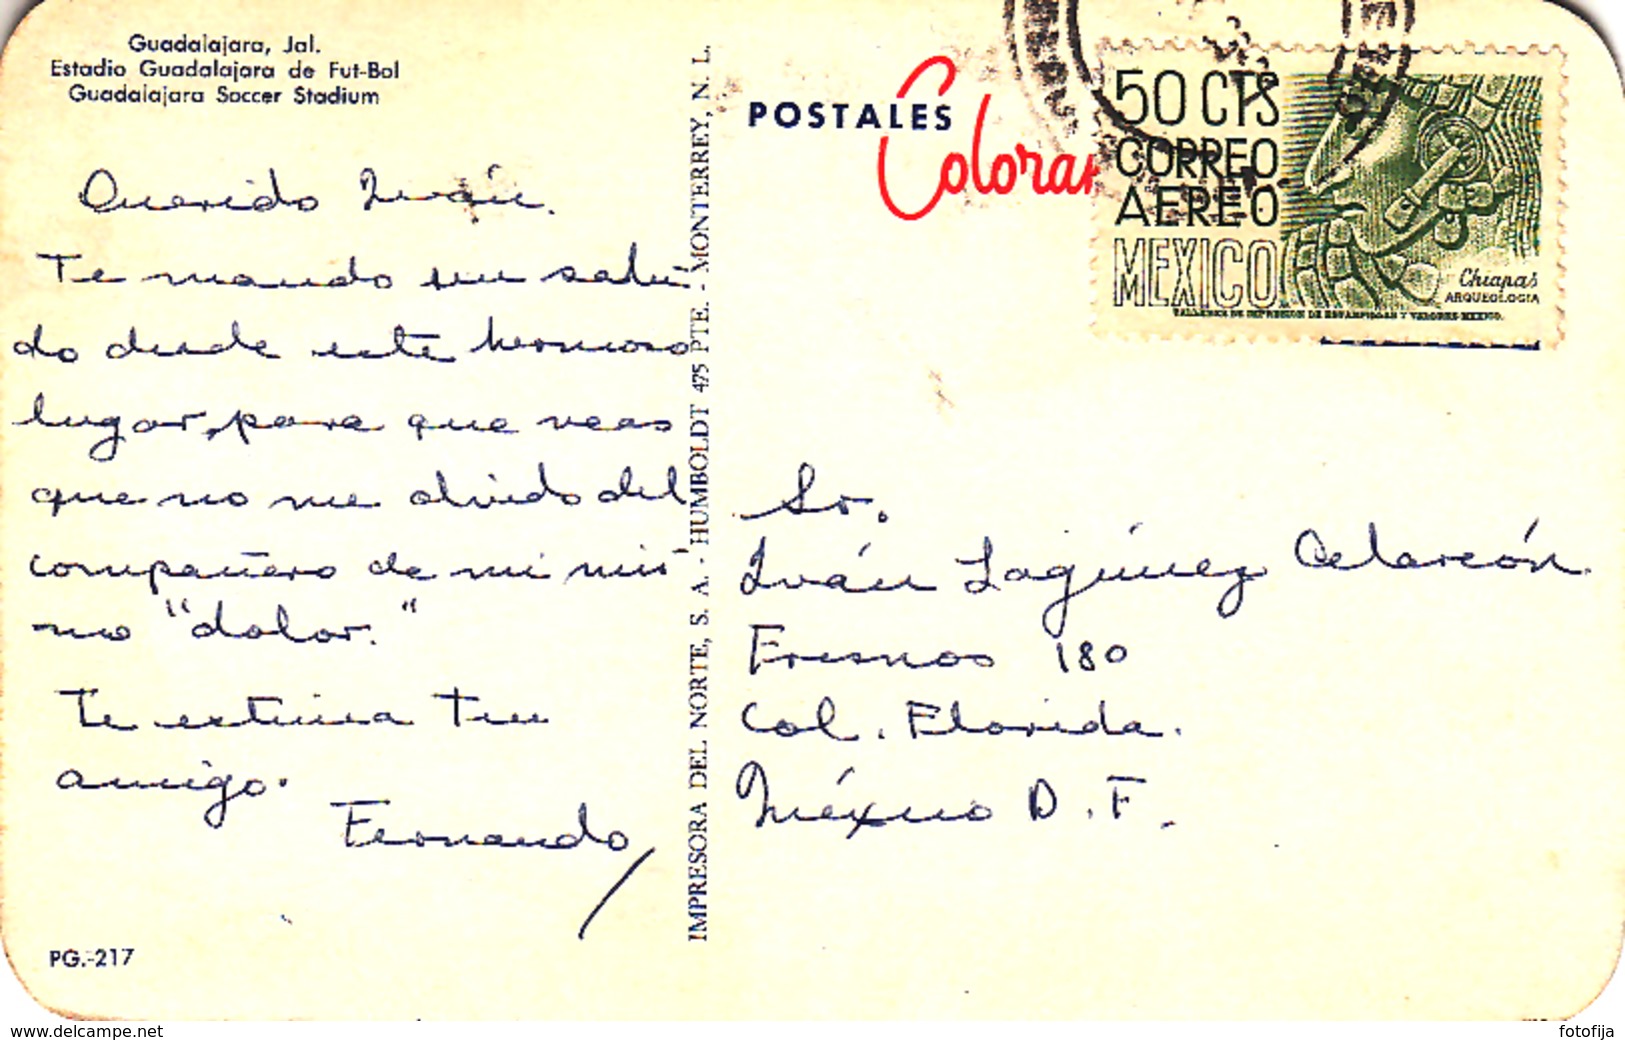 Guadalajara, Jal.
Estadio Guadalajara de Fut-Bol
Guadalajara Soccer Stadium
Querido Iván.
Te mando un salu-
do desde este hermoso
lugar, para que veas
que no me olvido del
compañero de mi mis-
mo "dolor."
Te estima tu
amigo.
Fernando
PG.-217
IMPRESORA DEL NORTE, S. A. - HUMBOLDT 475 PTE. - MONTERREY, N. L.
POSTALES
Colorama
50 CTS
CORREO
AEREO
MEXICO
Chiapas
ARQUEOLOGIA
TALLERES DE IMPRESION DE ESTAMPILLAS Y VALORES-MEXICO.
Sr.
Iván Lagúnez Alarcón
Fresnos 180
Col. Florida.
México D.F.
www.delcampe.net
fotofija